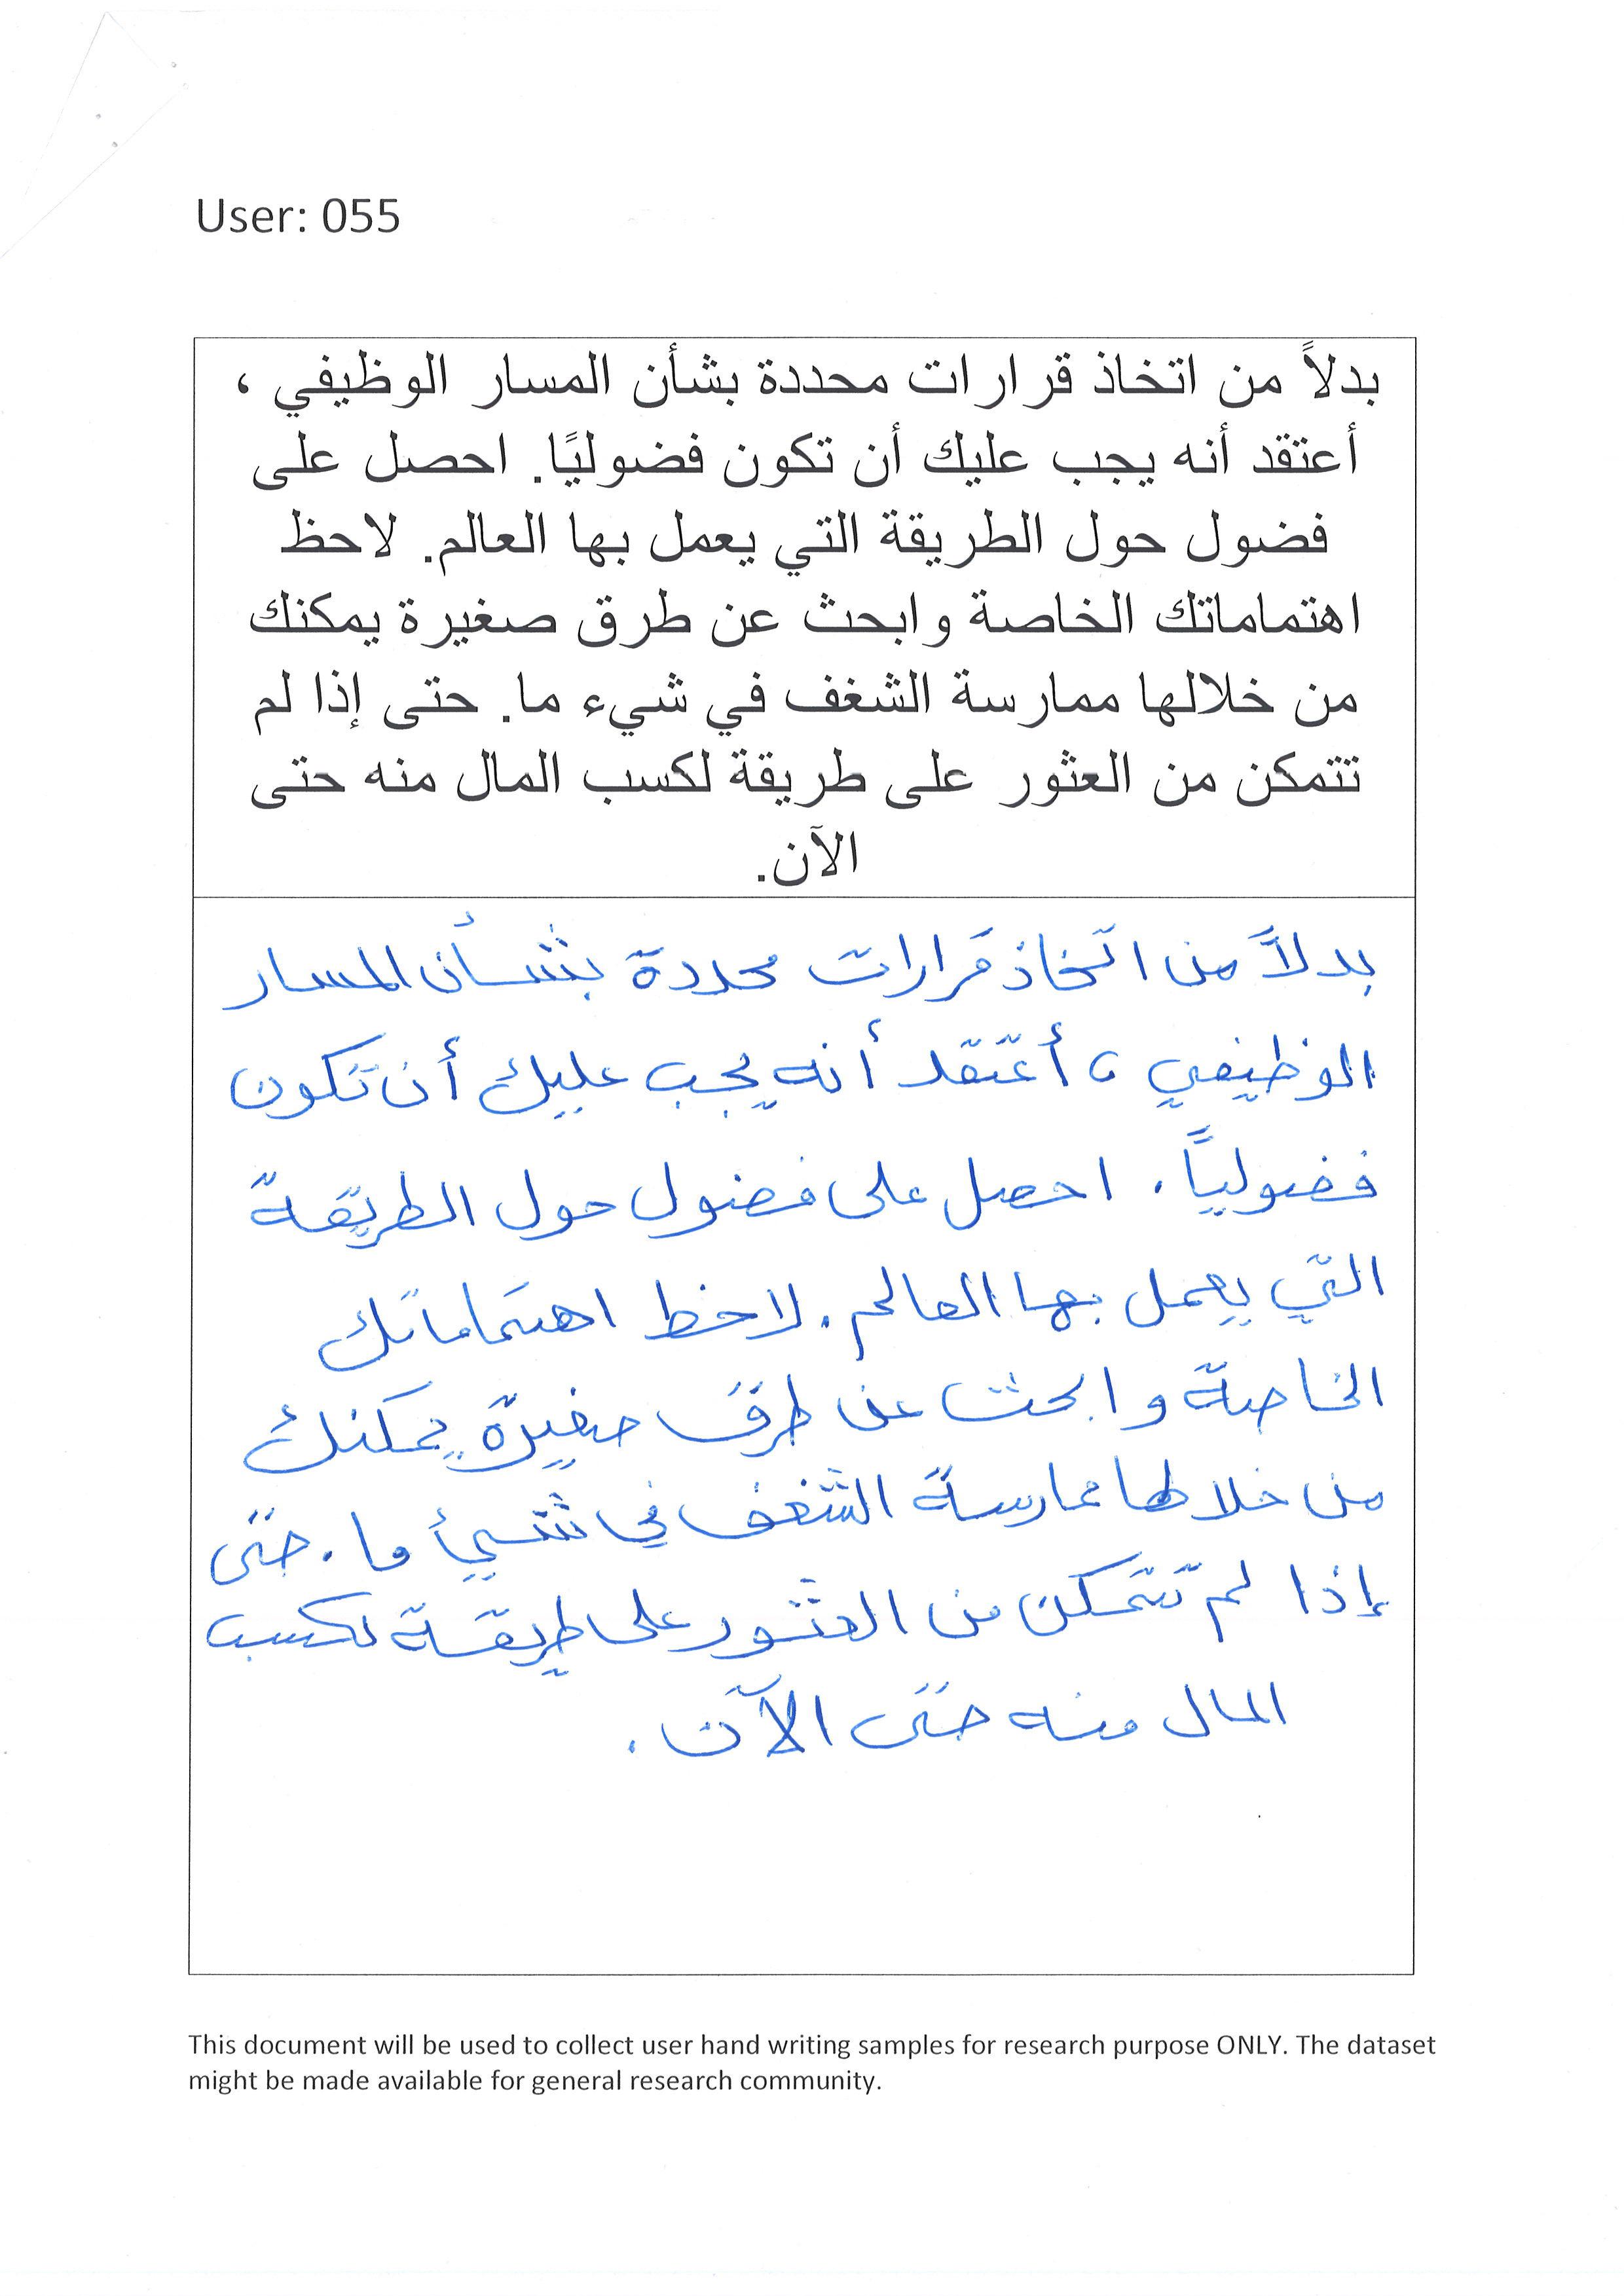 User: 055
بدلاً من اتخاذ قرارات محددة بشأن المسار الوظيفي ،
أعتقد أنه يجب عليك أن تكون فضوليًا. احصل على
فضول حول الطريقة التي يعمل بها العالم. لاحظ
اهتماماتك الخاصة وابحث عن طرق صغيرة يمكنك
من خلالها ممارسة الشغف في شيء ما. حتى إذا لم
تتمكن من العثور على طريقة لكسب المال منه حتى
الآن.
بدلاً من اتخاذ قرارات محددة بشأن المسار
الوظيفي ، أعتقد أنه يجب عليك أن تكون
فضولياً . احصل على فضول حول الطريقة
التي يعمل بها العالم . لاحظ اهتماماتك
الخاصة وابحث عن طرق صغيرة يمكنك
من خلالها ممارسة الشغف في شيئ ما . حتى
إذا لم تتمكن من العثور على طريقة لكسب
المال منه حتى الآن .
This document will be used to collect user hand writing samples for research purpose ONLY. The dataset
might be made available for general research community.